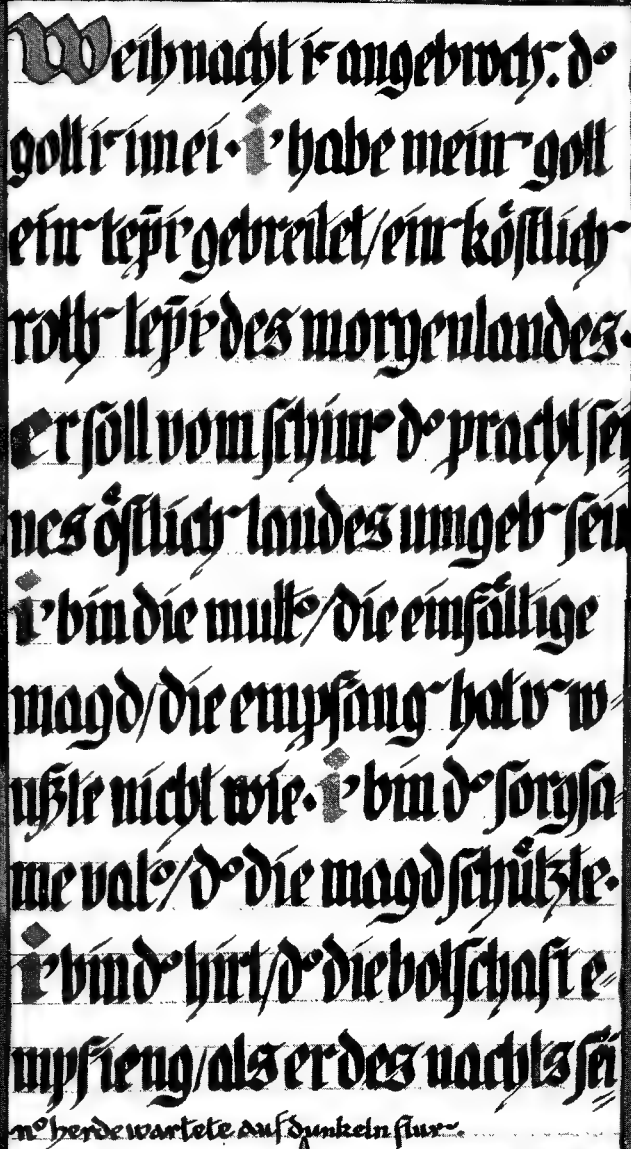 Weihnacht iſ angebroch. d°
gott iſ im ei · i’ habe mein gott
ein tep̄i’ gebreitet/ein köſtlich
roth tep̄i’ des morgenlandes·
er ſoll vom ſchim̄ d° pracht ſei
nes öſtlich landes umgeb ſein
i’ bin die mutt°/die einfältige
magd/die empfang hat v w=
ußte nicht wie. i’ bin d° ſorgſa
me vat°/d° die magd ſchützte·
i’ bin d° hirt/d° die botſchaft e=
mpfieng/als er des nachts ſei=
n° herde wartete auf dunkeln flur.